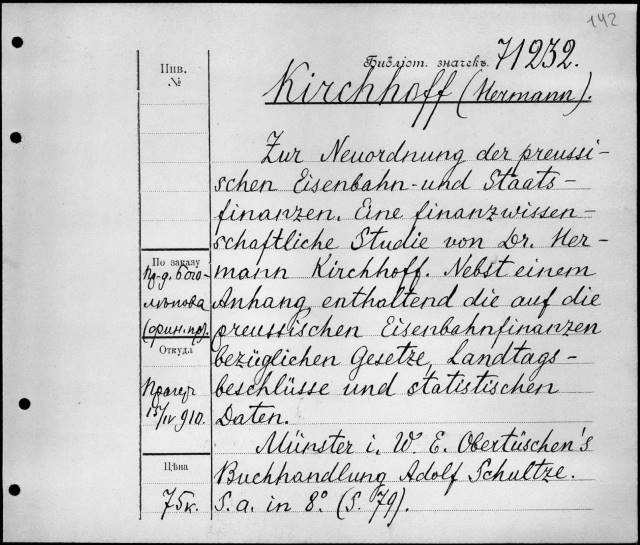 142
Библіот. значекъ. 71232.
Инв.
№
Kirchhoff (Hermann).
Zur Neuordnung der preussi-
schen Eisenbahn- und Staats-
finanzen. Eine finanzwissen-
schaftliche Studie von Dr. Her-
mann Kirchhoff. Nebst einem
Anhang, enthaltend die auf die
preussischen Eisenbahnfinanzen
bezüglichen Gesetze, Landtags-
beschlüsse und statistischen
Daten.
Münster i. W. E. Obertüschen's
Buchhandlung Adolf Schultze.
S. a. in 8° (S. 79).
По заказу
пр-д. Бого-
лѣпова
(фин. пр.).
Откуда
15/IV 910.
Цѣна
75к.